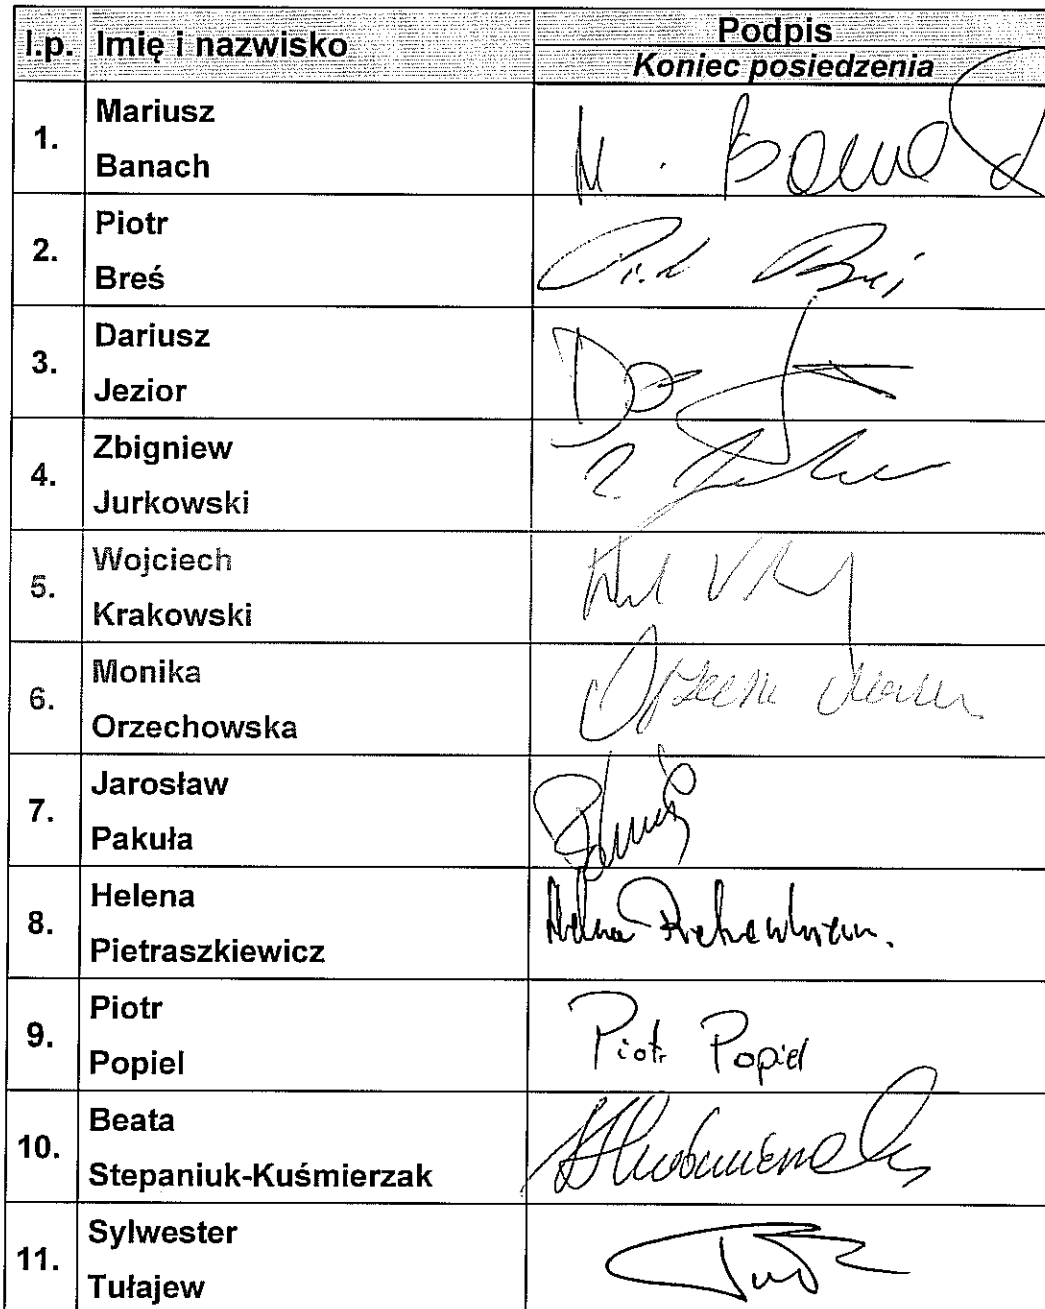 l.p. Imię i nazwisko Podpis
Koniec posiedzenia
1. Mariusz
Banach
M. Banach
2. Piotr
Breś
Breś
3. Dariusz
Jezior
4. Zbigniew
Jurkowski
5. Wojciech
Krakowski
6. Monika
Orzechowska
7. Jarosław
Pakuła
8. Helena
Pietraszkiewicz
Helena
9. Piotr
Popiel
Piotr Popiel
10. Beata
Stepaniuk-Kuśmierzak
11. Sylwester
Tułajew